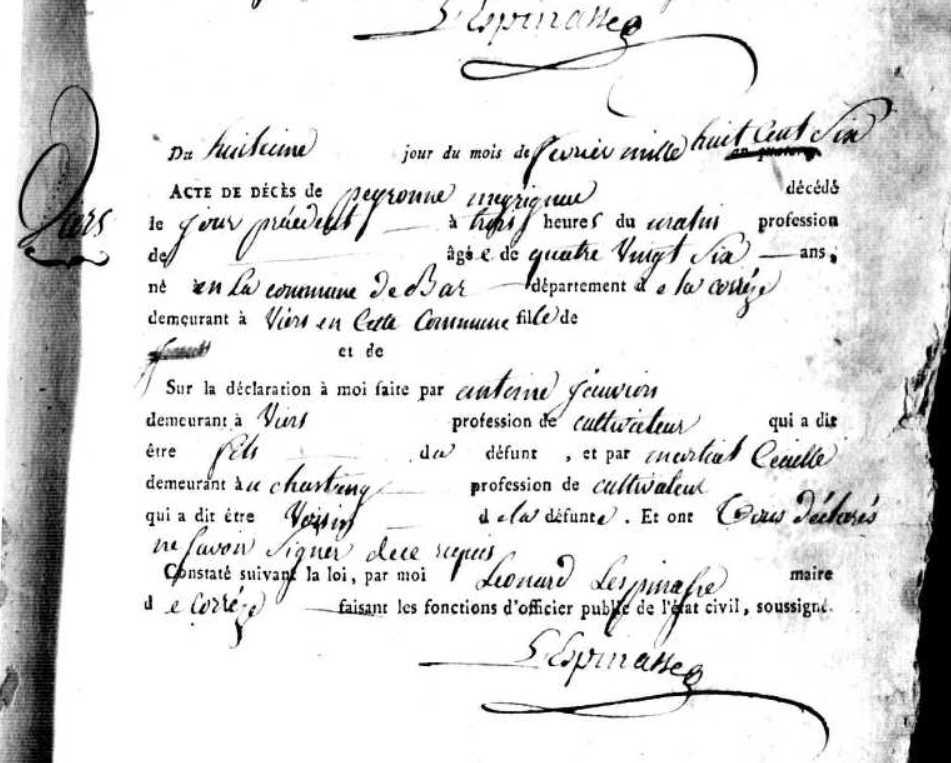 L'Espinasse
Viers
Du huitieme jour du mois de fevrier mille huit Cent Six
ACTE DE DÉCÈS de peyronne meyrignac décédé
le jour précédent à trois heures du matin profession
de âgée de quatre Vingt Six ans,
né en la commune de Bar département de la corrèze
demeurant à Viers en Cette Commune fille de
et de
Sur la déclaration à moi faite par antoine
demeurant à Viers profession de cultivateur qui a dit
être fils du défunt, et par martial
demeurant au chastang profession de cultivateur
qui a dit être Voisin de la défunte. Et ont tous déclarés
ne savoir signer de ce requis
Constaté suivant la loi, par moi Léonard Lespinasse maire
de Corrèze faisant les fonctions d'officier public de l'état civil, soussigné.
L'Espinasse